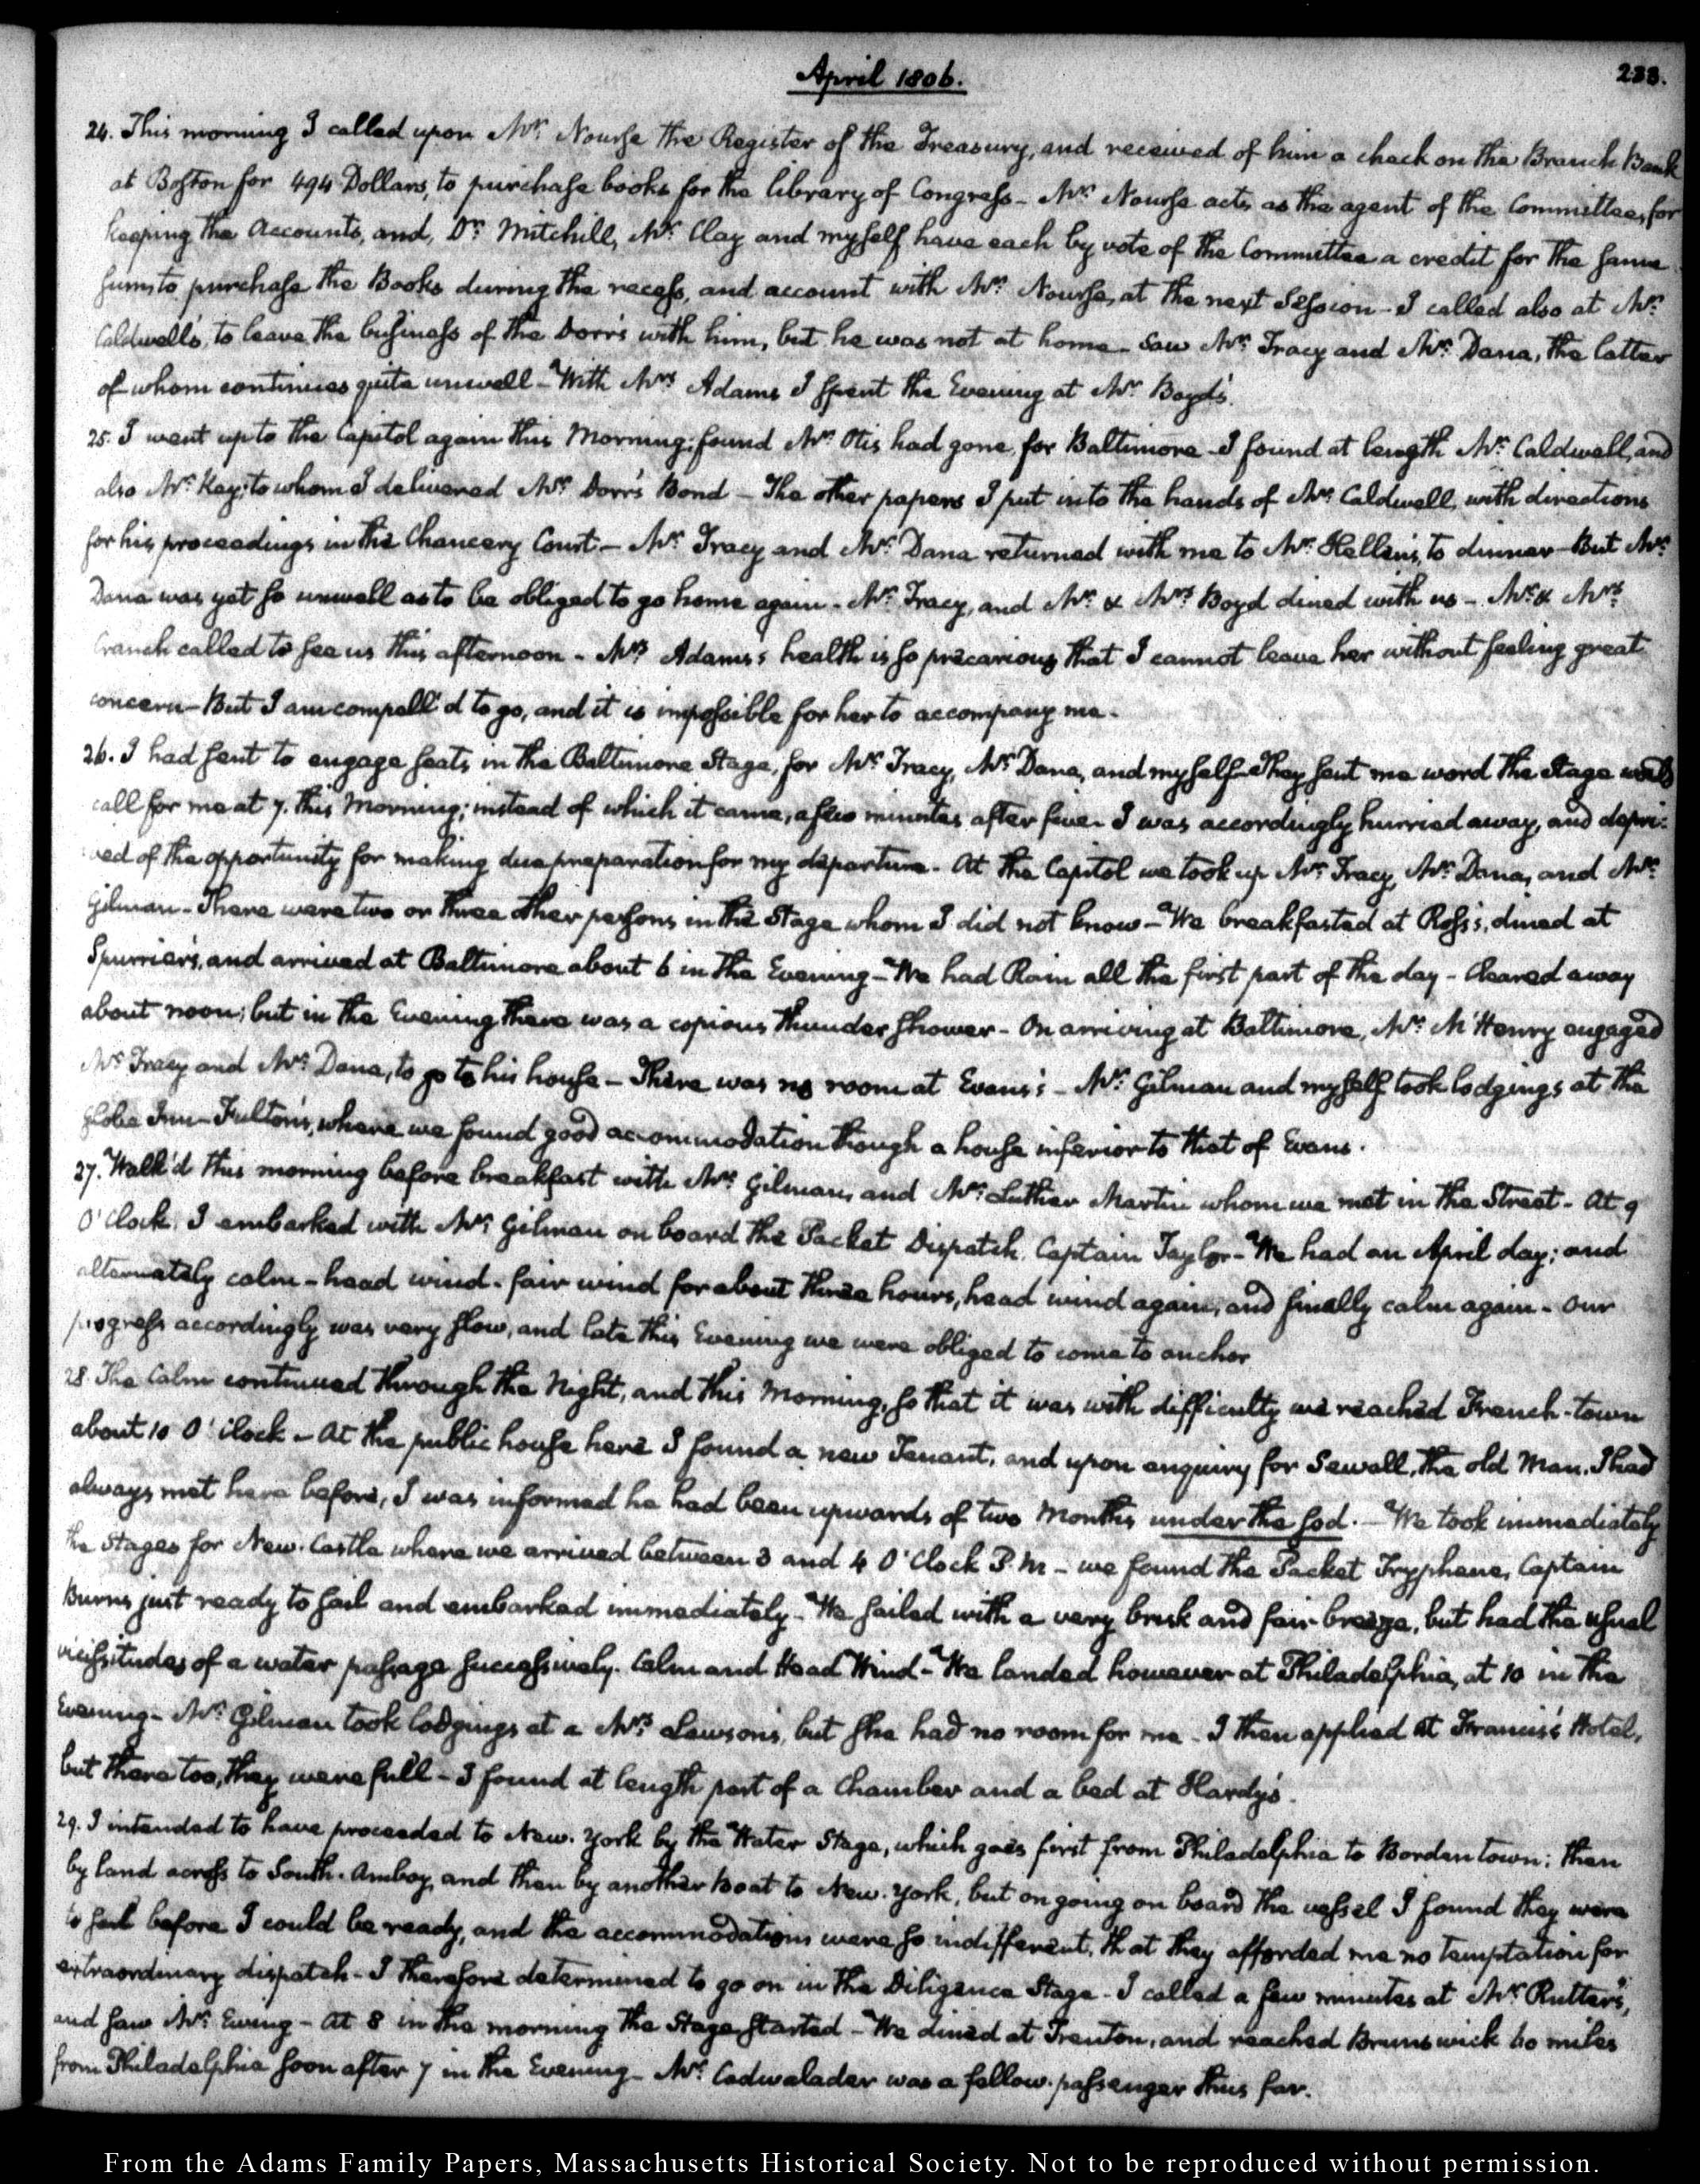 April 1806.
233.
24. This morning I called upon Mr. Nourse the Register of the Treasury, and received of him a check on the Branch Bank
at Boston for 494 Dollars, to purchase books for the library of Congress - Mr. Nourse acts as the agent of the Committee, for
keeping the Accounts, and, Dr. Mitchill, Mr. Clay and myself have each by vote of the Committee a credit for the same
sum, to purchase the Books during the recess, and account with Mr. Nourse, at the next Session - I called also at Mr.
Caldwell's, to leave the business of the Dorr's with him, but he was not at home - Saw Mr. Tracy and Mr. Dana, the latter
of whom continues quite unwell - With Mrs. Adams I spent the Evening at Mr. Boyd's.
25. I went up to the Capitol again this Morning; found Mr. Otis had gone for Baltimore - I found at length Mr. Caldwell, and
also Mr. Key; to whom I delivered Mr. Dorr's Bond - The other papers I put into the hands of Mr. Caldwell, with directions
for his proceedings in the Chancery Court - Mr. Tracy and Mr. Dana returned with me to Mr. Hellen's, to dinner - But Mr.
Dana was yet so unwell as to be obliged to go home again - Mr. Tracy, and Mr. & Mrs. Boyd dined with us - Mr. & Mrs.
Cranch called to see us this afternoon - Mrs. Adams's health is so precarious that I cannot leave her without feeling great
concern - But I am compell'd to go, and it is impossible for her to accompany me.
26. I had sent to engage seats in the Baltimore Stage, for Mr. Tracy, Mr. Dana, and myself - They sent me word the Stage would
call for me at 7. this Morning; instead of which it came, a few minutes after five - I was accordingly hurried away, and depri-
ved of the opportunity for making due preparation for my departure - At the Capitol we took up Mr. Tracy, Mr. Dana, and Mr.
Gilman - There were two or three other persons in the Stage whom I did not know - We breakfasted at Ross's, dined at
Spurrier's, and arrived at Baltimore about 6 in the Evening - We had Rain all the first part of the day - Cleared away
about noon; but in the Evening there was a copious thunder shower - On arriving at Baltimore, Mr. McHenry engaged
Mr. Tracy and Mr. Dana, to go to his house - There was no room at Evans's - Mr. Gilman and myself took lodgings at the
Globe Inn - Fulton's, where we found good accommodation though a house inferior to that of Evans.
27. Walk'd this morning before breakfast with Mr. Gilman, and Mr. Luther Martin whom we met in the Street - At 9
O'Clock. I embarked with Mr. Gilman on board the Packet Dispatch, Captain Taylor - We had an April day; and
alternately calm - head wind - fair wind for about three hours, head wind again, and finally calm again - Our
progress accordingly was very slow, and late this Evening we were obliged to come to anchor
28. The Calm continued through the Night, and this Morning, so that it was with difficulty we reached French-town
about 10 O'Clock - At the public house here I found a new Tenant, and upon enquiry for Sewall, the old Man, I had
always met here before, I was informed he had been upwards of two Months under the sod. - We took immediately
the Stages for New-Castle where we arrived between 3 and 4 O'Clock P.M - we found the Packet Tryphena, Captain
Burns just ready to sail and embarked immediately - We sailed with a very brisk and fair breeze, but had the usual
vicissitudes of a water passage successively. Calm and Head Wind - We landed however at Philadelphia, at 10 in the
Evening - Mr. Gilman took lodgings at a Mrs. Lawson's, but she had no room for me - I then applied at Francis's Hotel,
but there too, they were full - I found at length part of a Chamber and a bed at Hardy's.
29. I intended to have proceeded to New-York by the Water Stage, which goes first from Philadelphia to Bordentown; then
by land across to South-Amboy, and then by another Boat to New-York, but on going on board the vessel I found they were
to sail before I could be ready, and the accommodations were so indifferent, that they afforded me no temptation for
extraordinary dispatch - I therefore determined to go on in the Diligence Stage - I called a few minutes at Mr. Rutter's,
and saw Mr. Ewing - At 8 in the morning the Stage started - We dined at Trenton, and reached Brunswick 60 miles
from Philadelphia soon after 7 in the Evening - Mr. Cadwalader was a fellow-passenger thus far.
From the Adams Family Papers, Massachusetts Historical Society. Not to be reproduced without permission.